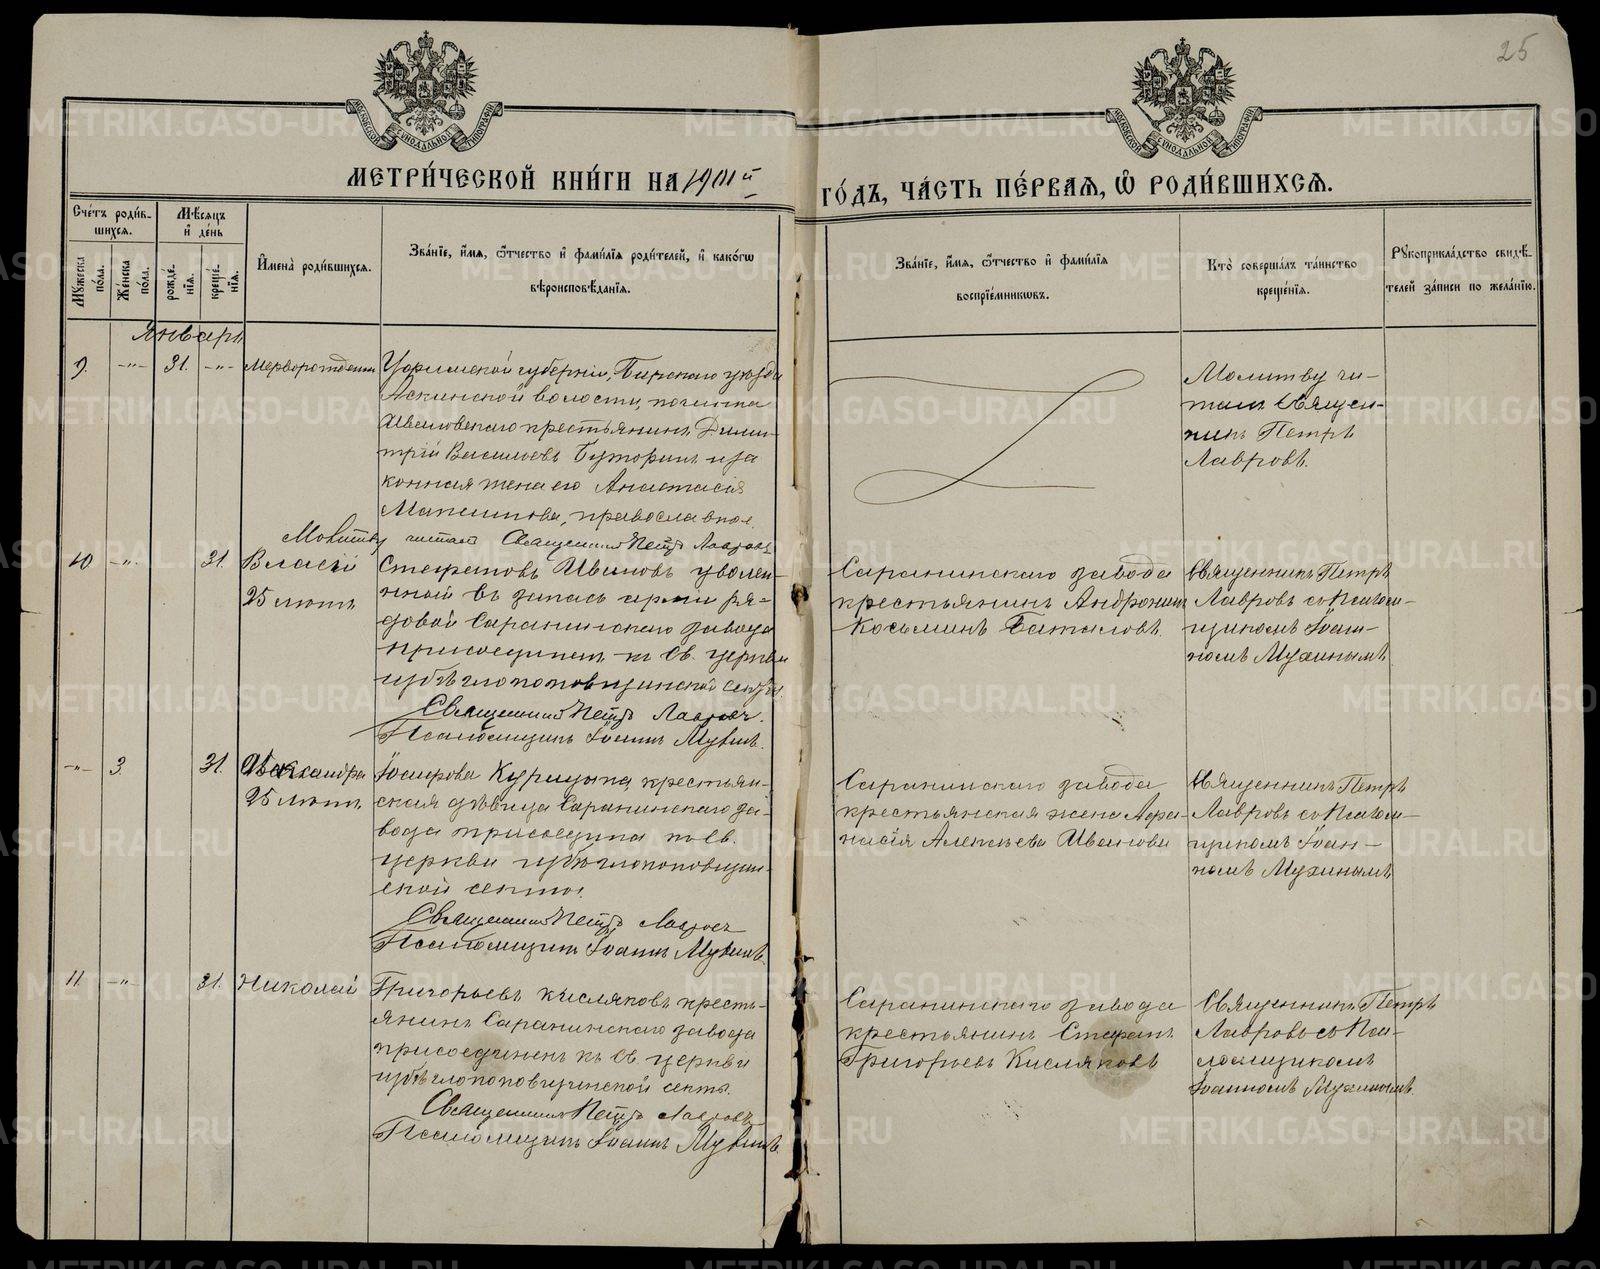 25
МОСКОВСКОЙ СѴНОДАЛЬНОЙ ТИПОГРАФІИ
МОСКОВСКОЙ СѴНОДАЛЬНОЙ ТИПОГРАФІИ
МЕТРИ́ЧЕСКОЙ КНИ́ГИ НА 1901й ГО́ДЪ, ЧА́СТЬ ПЕ́РВАѦ, Ѽ РОДИ́ВШИХСѦ.
Сче́тъ роди́вшихся.
Мѣ́сяцъ и҆ де́нь
Мꙋ́жеска по́ла.
Же́нска по́ла.
рожде́нїѧ.
креще́нїѧ.
И҆мена̀ роди́вшихсѧ.
Зва́нїе, и҆́мѧ, ѻ҆́тчество и҆ фами́лїѧ роди́телей, и҆ како́гѡ вѣроисповѣ́данїѧ.
Зва́нїе, и҆́мѧ, ѻ҆́тчество и҆ фами́лїѧ воспрїе́мникѡвъ.
Кто̀ соверша́лъ та́инство креще́нїѧ.
Рꙋкоприкла́дство свидѣ́телей за́писи по жела́нїю.
Январь
9. -"- 31. -"- Мертворожденный
Уфимской губерніи, Бирскаго уѣзда
Аскинской волости, починка
Ивановскаго крестьянинъ Дими-
трій Васильевъ Буторинъ и за
конная жена его Анастасія
Максимова, православные.
Молитву читалъ Священникъ Петръ Лавровъ
Молитву чи-
талъ Священ-
никъ Петръ
Лавровъ.
10 -"- 31. Власій
25 лѣтъ
Стефановъ Ивановъ уволен-
ной въ запасъ арміи ря-
довой Саранинскаго завода
присоединенъ къ Св. церкви
изъ бѣглопоповщинской секты.
Священникъ Петръ Лавровъ.
Псаломщикъ Іоаннъ Мухинъ.
Саранинскаго завода
крестьянинъ Андроникъ
Косьминъ Баталовъ.
Священникъ Петръ
Лавровъ со Псалом-
щикомъ Іоан-
номъ Мухинымъ.
-"- 3. 31. Александра
25 лѣтъ
Іосифова Курицына, крестьян-
ская дѣвица Саранинскаго за-
вода присоедина къ Св.
церкви изъ бѣглопоповщин-
ской секты.
Священникъ Петръ Лавровъ
Псаломщикъ Іоаннъ Мухинъ.
Саранинскаго завода
крестьянская жена Афа-
насія Алексѣева Иванова
Священникъ Петръ
Лавровъ со Псалом-
щикомъ Іоан-
номъ Мухинымъ
11 -"- 31. Николай
Григорьевъ Кисляковъ кресть-
янинъ Саранинскаго завода
присоединенъ къ Св. церкви
изъ бѣглопоповщинской секты.
Священникъ Петръ Лавровъ
Псаломщикъ Іоаннъ Мухинъ.
Саранинскаго завода
крестьянинъ Стефанъ
Григорьевъ Кисляковъ
Священникъ Петръ
Лавровъ съ Пса-
ломщикомъ
Іоанномъ Мухинымъ.
METRIKI.GASO-URAL.RU